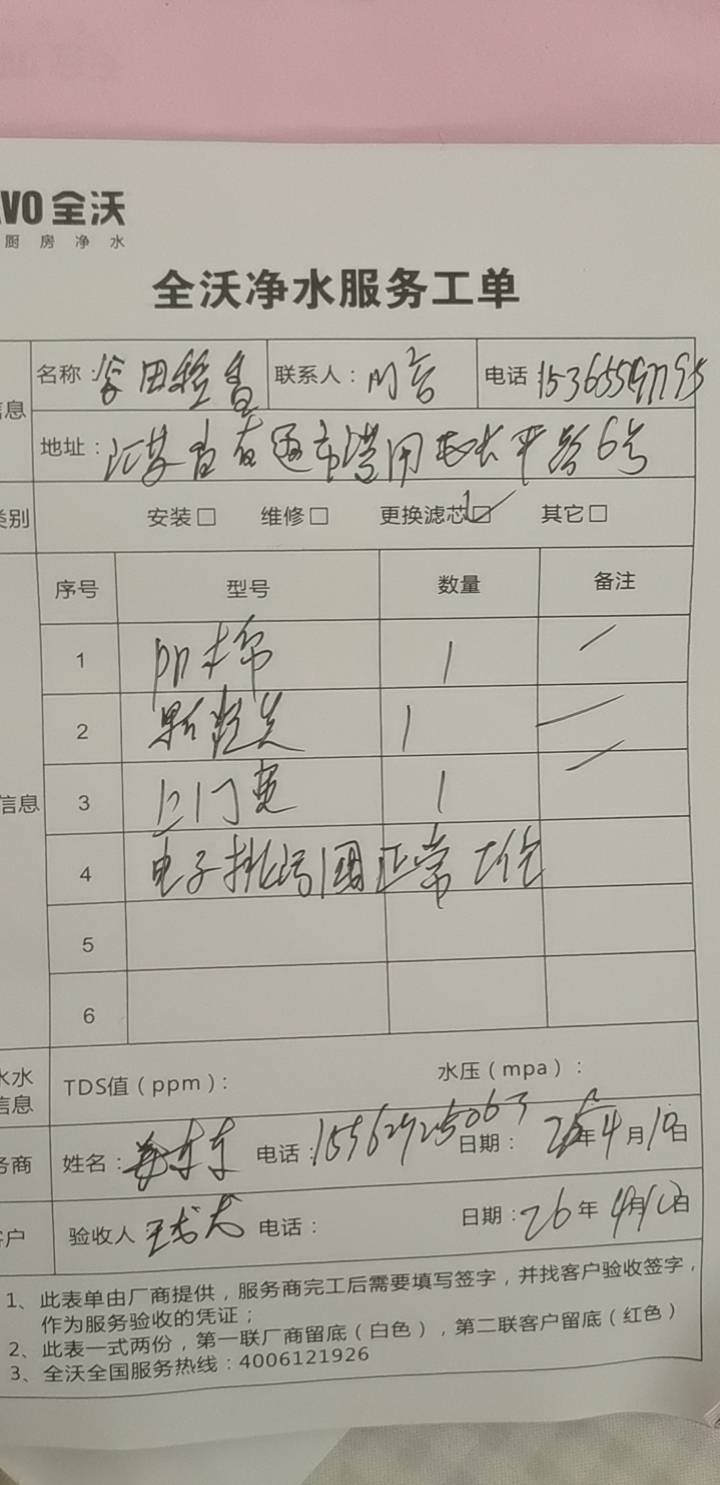 VO 全沃
厨房净水
全沃净水服务工单
息
名称： 联系人： 电话
地址：江苏省南通市 路6号
类别 安装□ 维修□ 更换滤芯☑ 其它□
序号 型号 数量 备注
1 PP棉 1
2 颗粒炭 1
信息 3 上门费 1
4 电子排污阀正常工作
5
6
水
信息 TDS值（ppm）： 水压（mpa）：
务商 姓名： 电话： 日期： 年4月10日
户 验收人 电话： 日期：26年4月10日
1、此表单由厂商提供，服务商完工后需要填写签字，并找客户验收签字，
作为服务验收的凭证；
2、此表一式两份，第一联厂商留底（白色），第二联客户留底（红色）
3、全沃全国服务热线：4006121926